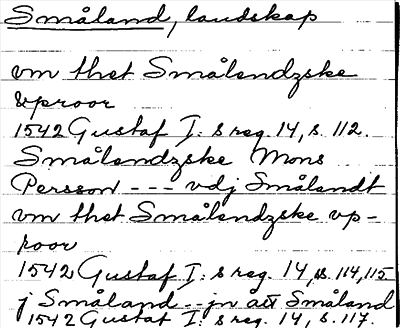 Småland, landskap
vm thet Smålendzske
vproor
1542 Gustaf I: s reg. 14, s. 112.
Smålandzske Mons
Persson --- vdj Smålandt
vm thet Smålendzske vp-
roor
1542 Gustaf I: s reg. 14, s. 114, 115
j Småland -- jn ått Småland
1542 Gustaf I: s reg. 14, s. 117.